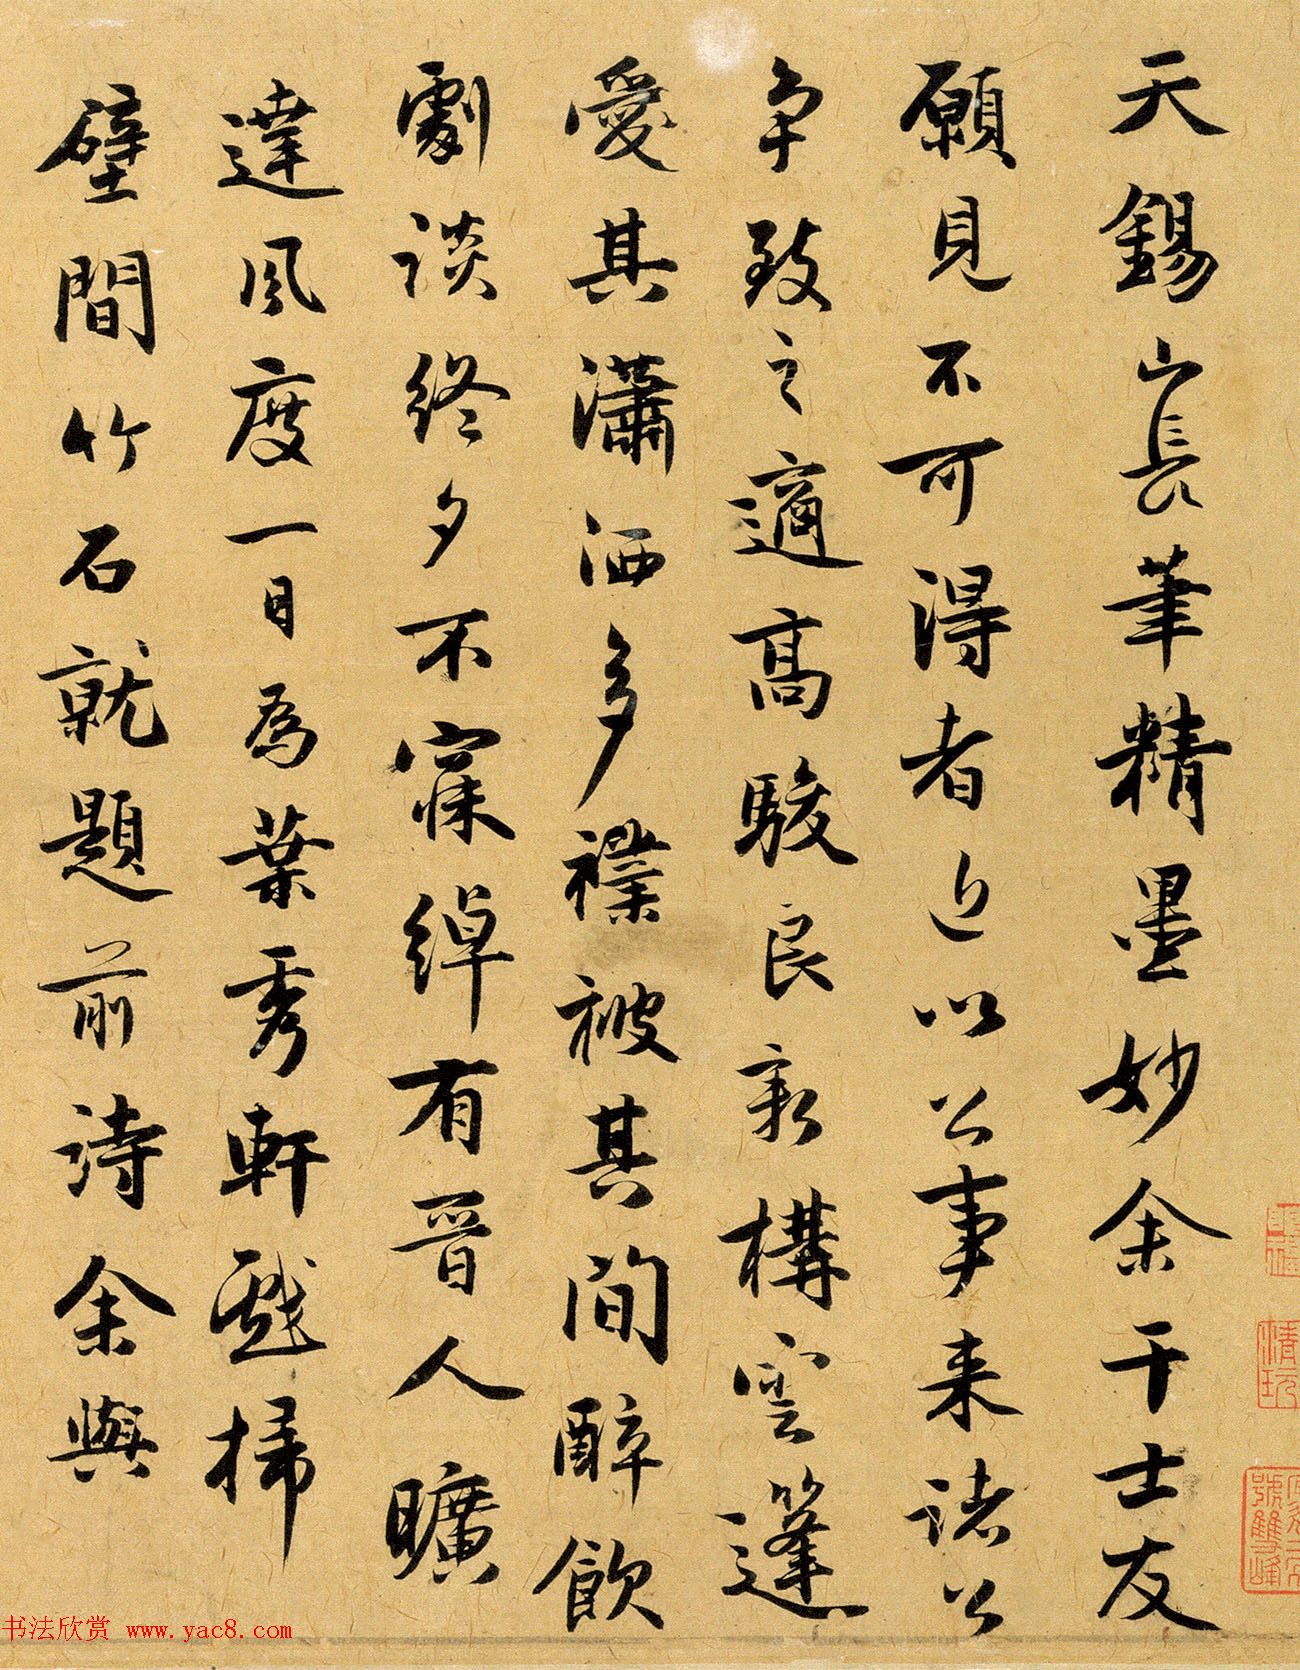 天錫山長筆精墨妙余干士友
願見不可得者近以公事来諸公
争致之適高駿良新構雲篷
愛其瀟洒多襍被其間醉飲
劇談終夕不寐綽有晉人曠
達風度一日為葉秀軒戲掃
壁間竹石就題前詩余與
清玩
號雙峰
书法欣赏 www.yac8.com